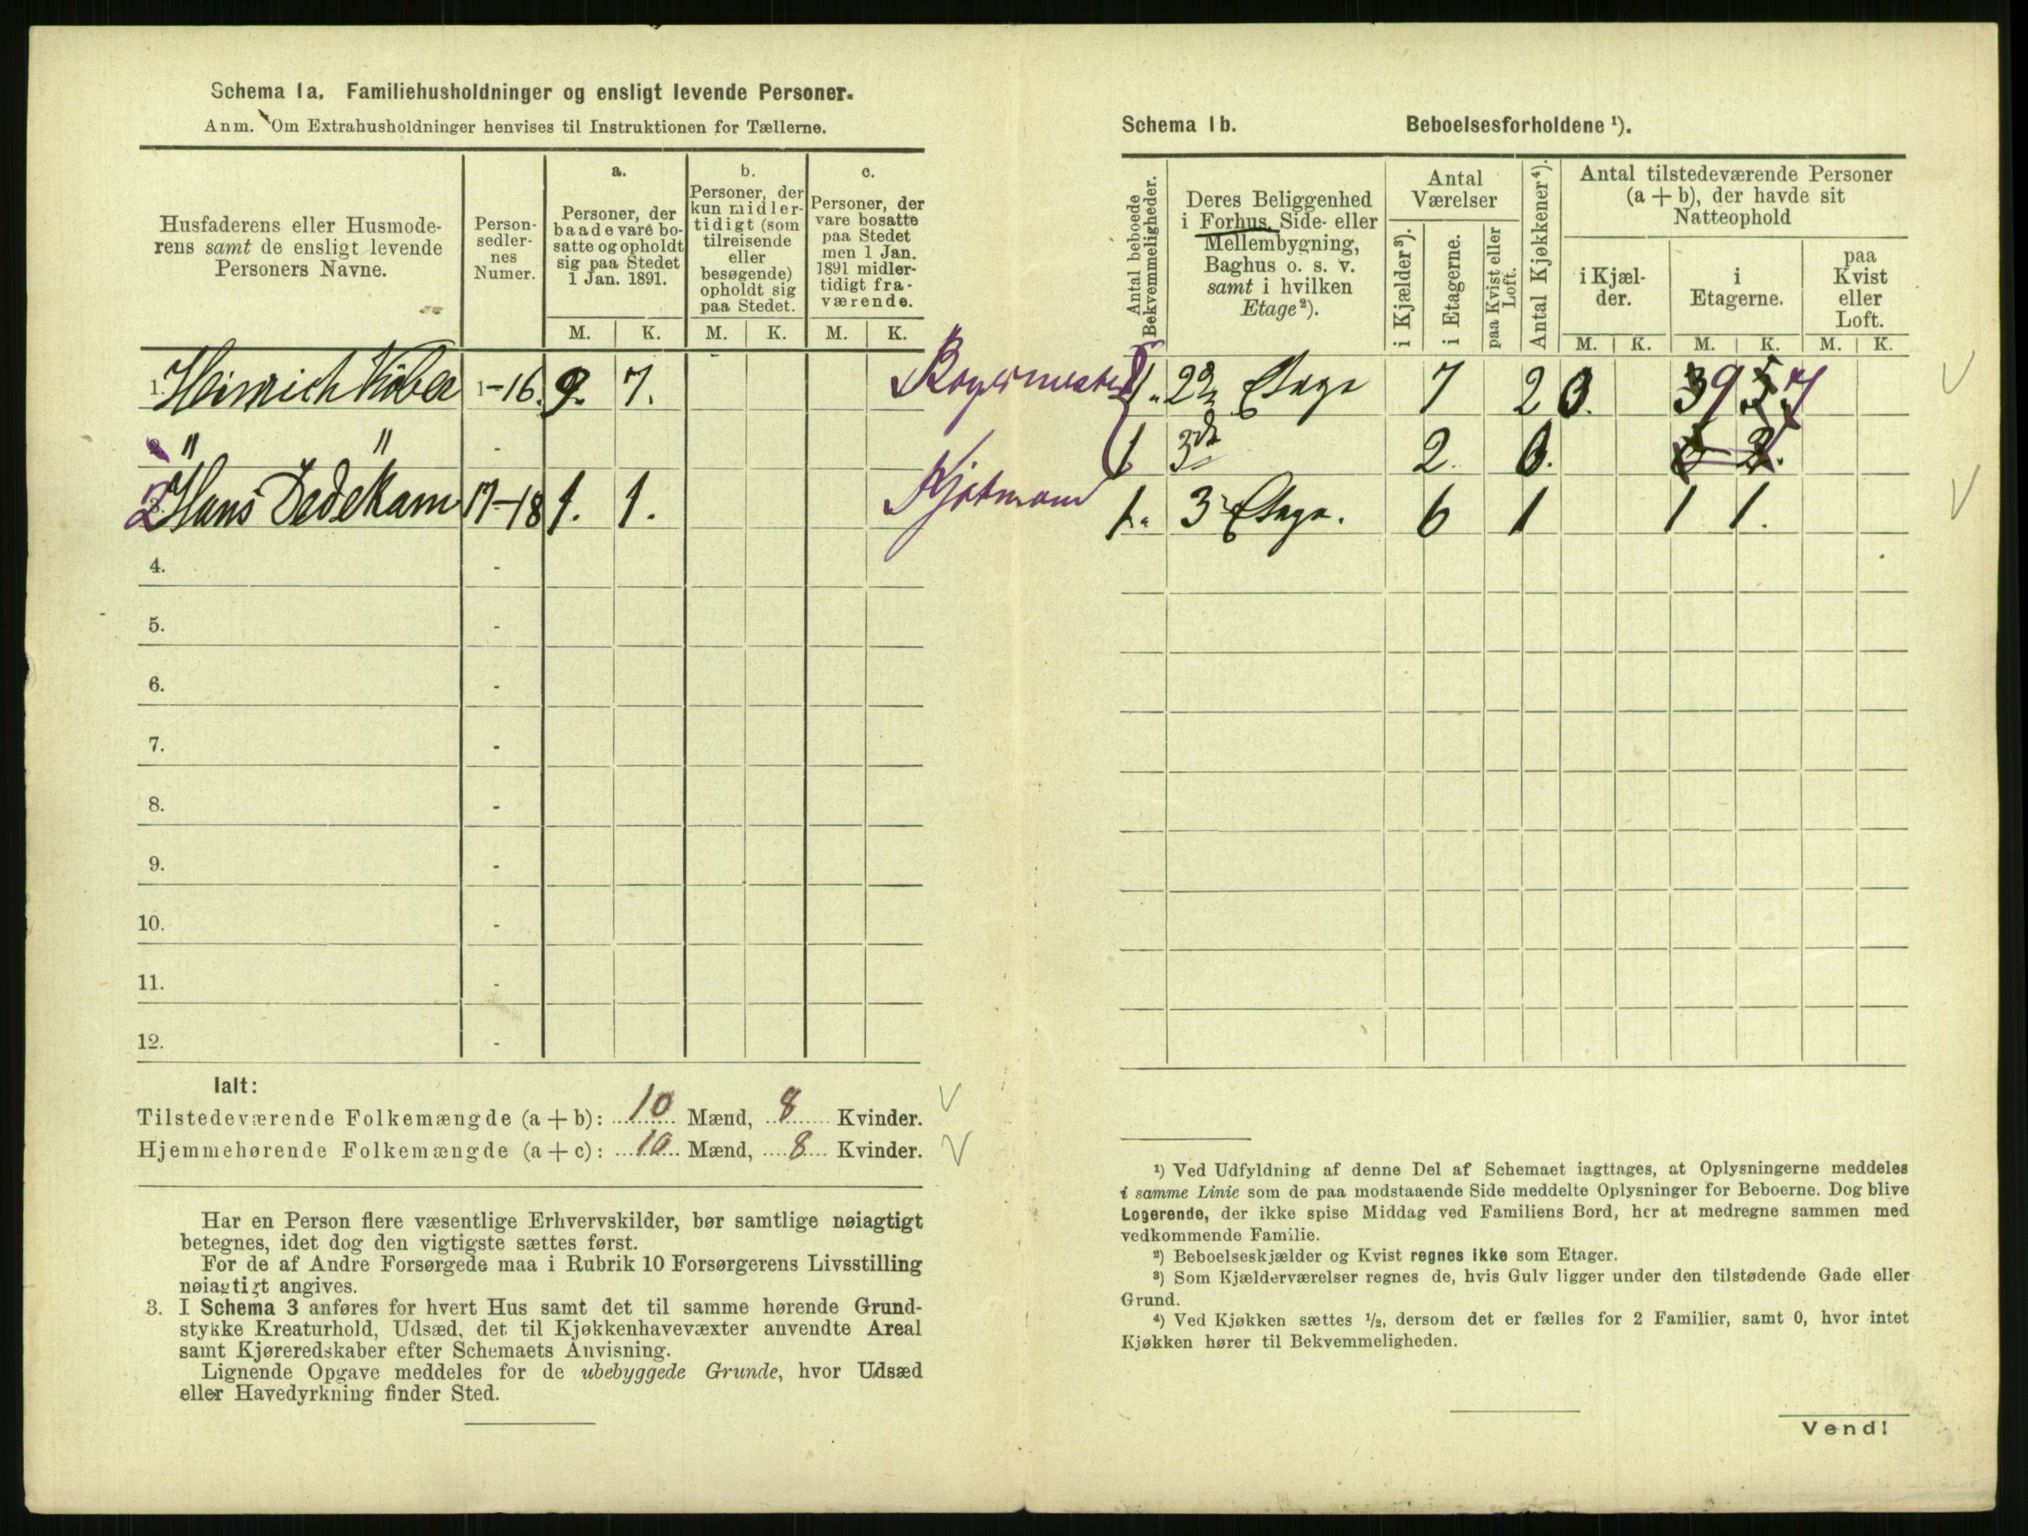 Schema 1a. Familiehusholdninger og ensligt levende Personer.
Anm. Om Extrahusholdninger henvises til Instruktionen for Tællerne.
Husfaderens eller Husmode-
rens samt de ensligt levende
Personers Navne.
Person-
sedler-
nes
Numer.
a.
Personer, der
baade vare bo-
satte og opholdt
sig paa Stedet
1 Jan. 1891.
b.
Personer, der
kun midler-
tidigt (som
tilreisende
eller
besøgende)
opholdt sig
paa Stedet.
c.
Personer, der
vare bosatte
paa Stedet
men 1 Jan.
1891 midler-
tidigt fra-
værende.
M. K. M. K. M. K.
1. Heinrich Köber 1-16. 9. 7.
" " -
2 Hans Dedekam 17-18 1. 1.
4. -
5. -
6. -
7. -
8. -
9. -
10. -
11. -
12. -
Ialt:
Tilstedeværende Folkemængde (a + b): 10 Mænd, 8 Kvinder.
Hjemmehørende Folkemængde (a + c): 10 Mænd, 8 Kvinder.
Har en Person flere væsentlige Erhvervskilder, bør samtlige nøiagtigt
betegnes, idet dog den vigtigste sættes først.
For de af Andre Forsørgede maa i Rubrik 10 Forsørgerens Livsstilling
nøiagtigt angives.
3. I Schema 3 anføres for hvert Hus samt det til samme hørende Grund-
stykke Kreaturhold, Udsæd, det til Kjøkkenhavevæxter anvendte Areal
samt Kjøreredskaber efter Schemaets Anvisning.
Lignende Opgave meddeles for de ubebyggede Grunde, hvor Udsæd
eller Havedyrkning finder Sted.
Schema 1b. Beboelsesforholdene ¹).
Antal beboede
Bekvemmeligheder.
Deres Beliggenhed
i Forhus, Side- eller
Mellembygning,
Baghus o. s. v.
samt i hvilken
Etage²).
Antal
Værelser
i Kjælder³).
i Etagerne.
paa Kvist eller
Loft.
Antal Kjøkkener⁴).
Antal tilstedeværende Personer
(a + b), der havde sit
Natteophold
i Kjæl-
der.
i
Etagerne.
paa
Kvist
eller
Loft.
M. K. M. K. M. K.
1. 2den Etage 7 2 0. 9 7
1 3de 2. 0.
1. 3 Etage. 6 1 1 1.
¹) Ved Udfyldning af denne Del af Schemaet iagttages, at Oplysningerne meddeles
i samme Linie som de paa modstaaende Side meddelte Oplysninger for Beboerne. Dog blive
Logerende, der ikke spise Middag ved Familiens Bord, her at medregne sammen med
vedkommende Familie.
²) Beboelseskjælder og Kvist regnes ikke som Etager.
³) Som Kjælderværelser regnes de, hvis Gulv ligger under den tilstødende Gade eller
Grund.
⁴) Ved Kjøkken sættes ½, dersom det er fælles for 2 Familier, samt 0, hvor intet
Kjøkken hører til Bekvemmeligheden.
Vend!